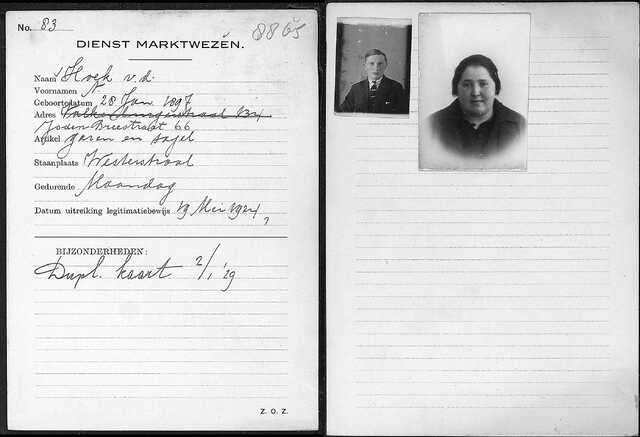 No. 83
8865
DIENST MARKTWEZEN.
Naam Hoek v.d.
Voornamen N
Geboortedatum 28 Jan. 1897
Adres
Joden Breestraat 66
Artikel garen en sajet
Staanplaats Westerstraat
Gedurende Maandag
Datum uitreiking legitimatiebewijs 19 Mei
BIJZONDERHEDEN:
Dupl. kaart 2/1 '29
Z. O. Z.